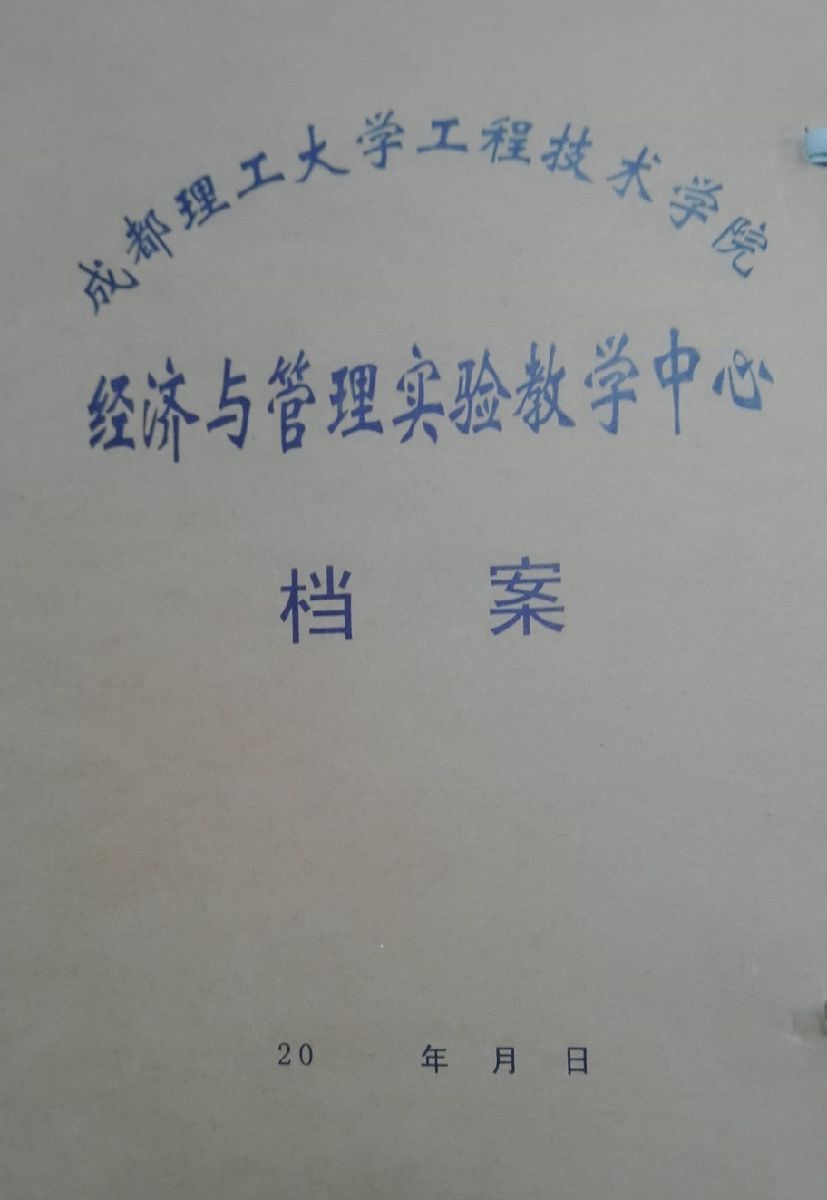 成都理工大学工程技术学院
经济与管理实验教学中心
档 案
20 年 月 日